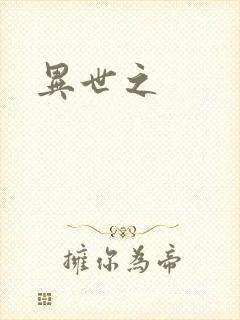 異世之
擁你為帝